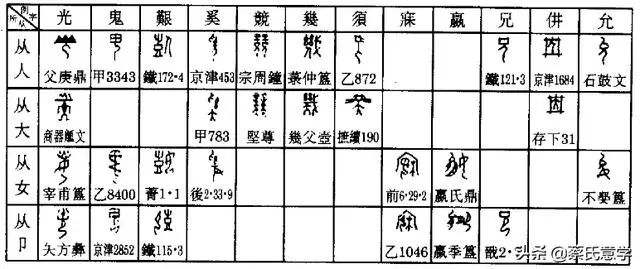 例字 光 鬼 艱 奚 競 幾 須 寐 嬴 兄 倂 允
所从
从人
父庚鼎 甲3343 鐵172·4 京津453 宗周鐘 乙872 鐵121·3 京津1684 石鼓文
从大
甲783 堅尊 幾父壺 存下31
从女
宰甫簋 乙8400 菁1·1 後2·33·9 前6·29·2 嬴氏鼎 不𡢁簋
从卩
矢方彝 京津2852 鐵115·3 乙1046 嬴季簋
头条 @蔡氏意学